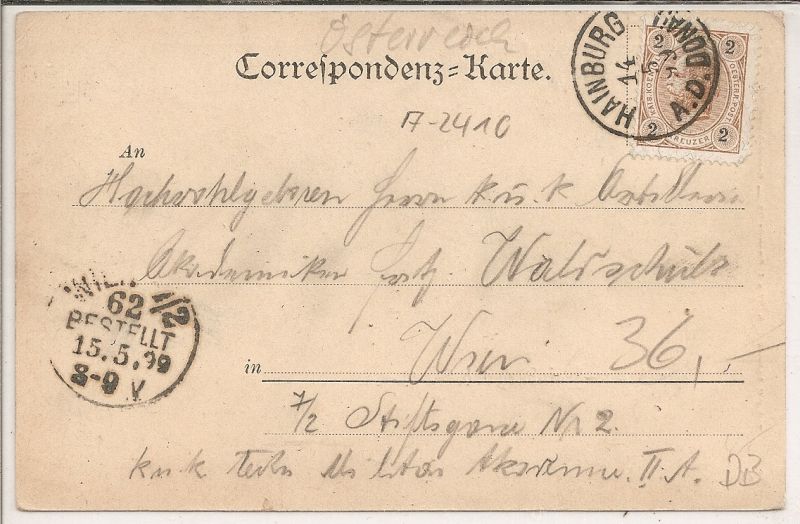 Österreich
Correspondenz-Karte.
HAINBURG A.D. DONAU
14
2 2
KAIS. KOEN. OESTERR. POST
2 KREUZER 2
A-2410
An
Hochwohlgeboren Herrn k u. k Artillerie
Akademiker
WIEN 7/2
62
BESTELLT
15.5.99
8-9 V
in Wien 36,-
7/2 Stiftgasse Nr 2.
k u k techn Militär Akademie. II. A.
DB